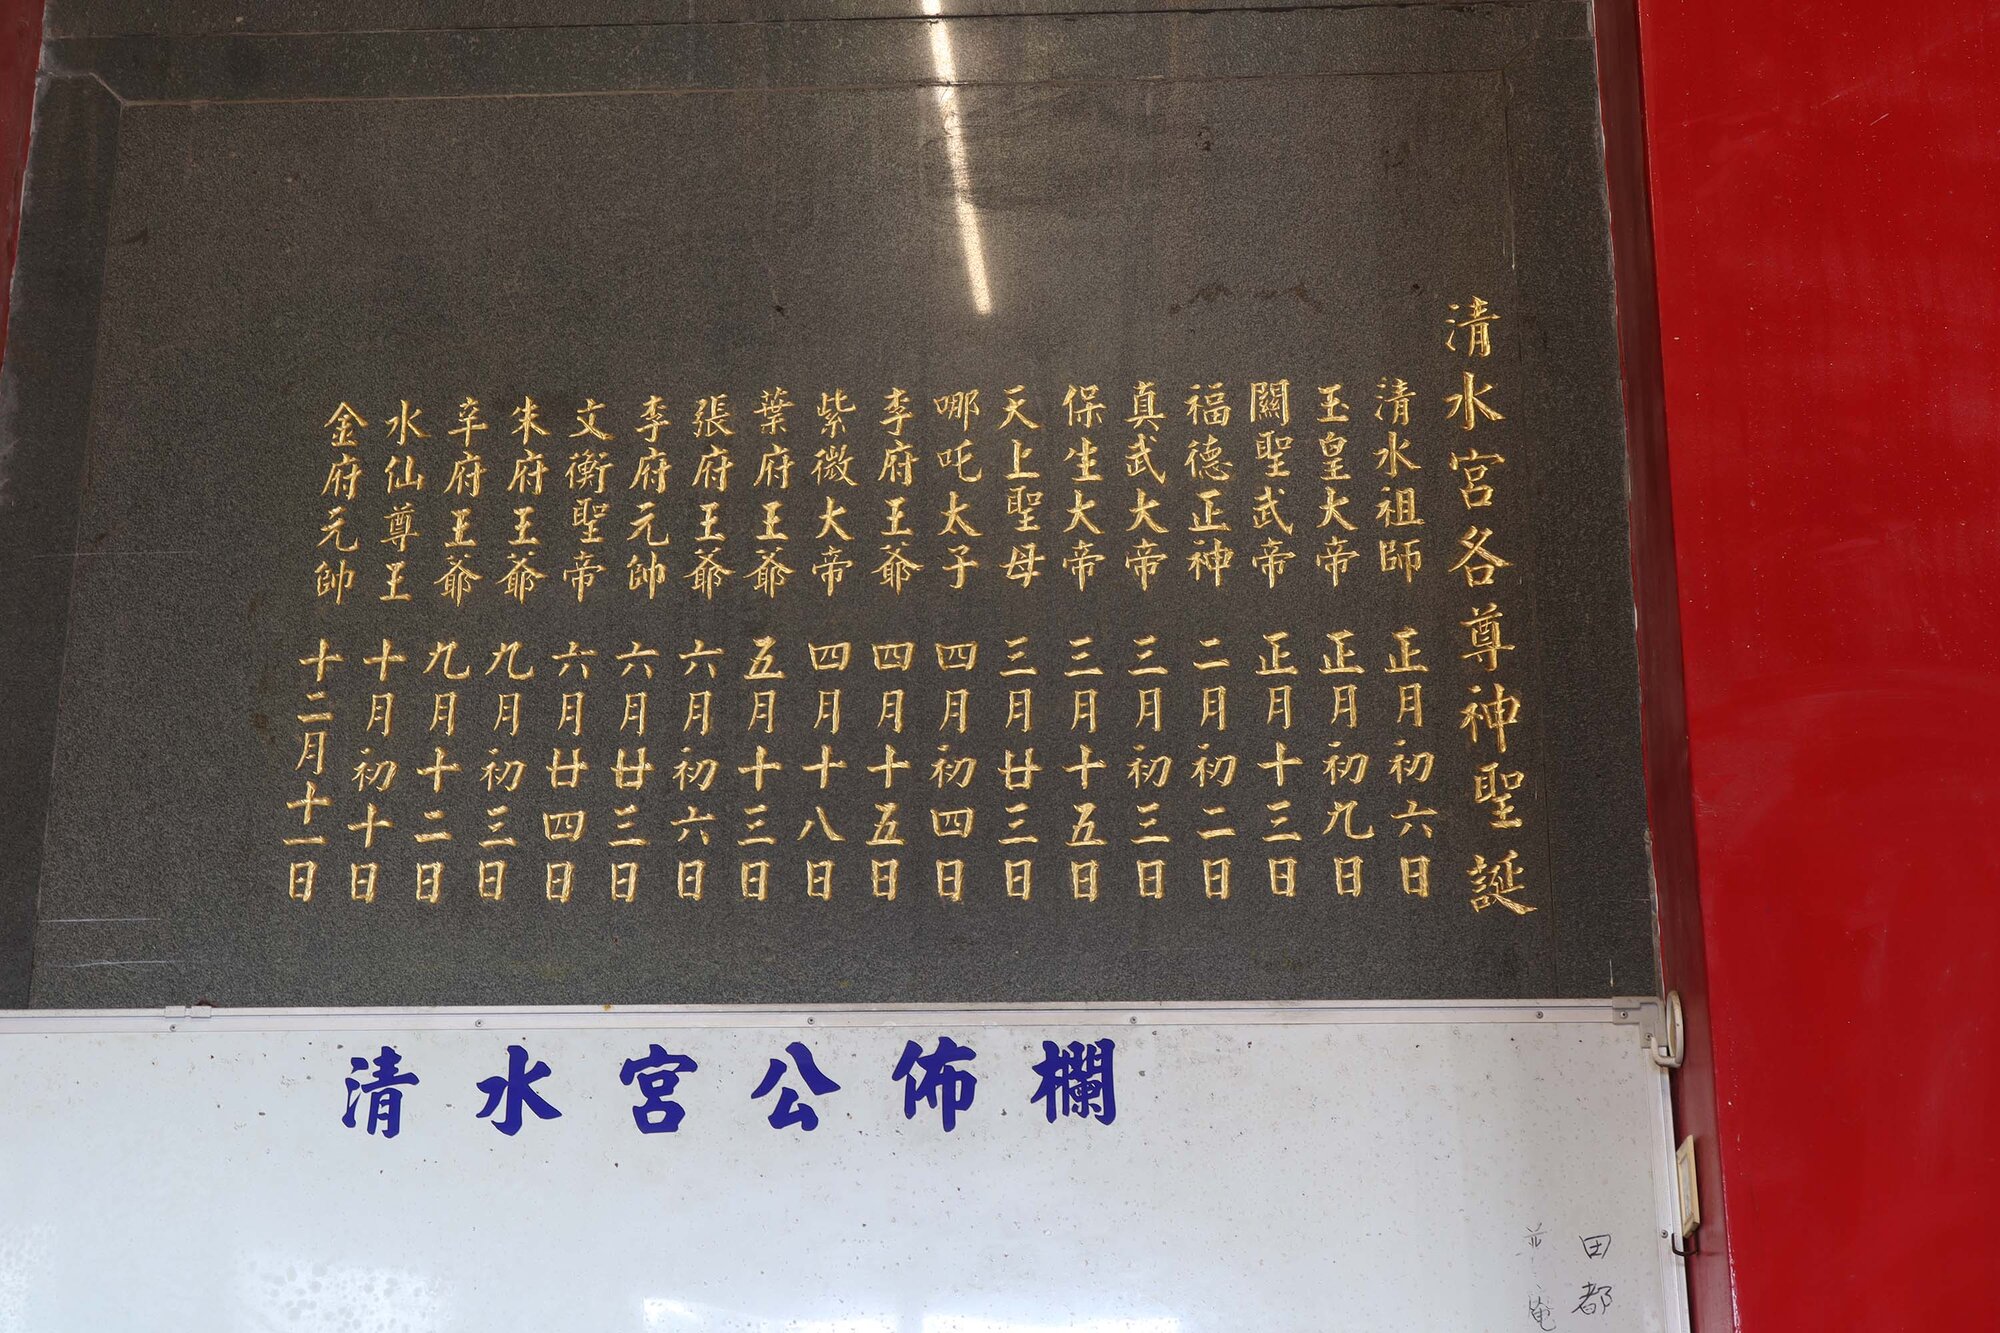 清水宮各尊神聖誕
清水祖師 正月初六日
玉皇大帝 正月初九日
關聖武帝 正月十三日
福德正神 二月初二日
真武大帝 三月初三日
保生大帝 三月十五日
天上聖母 三月廿三日
哪吒太子 四月初四日
李府王爺 四月十五日
紫微大帝 四月十八日
葉府王爺 五月十三日
張府王爺 六月初六日
李府元帥 六月廿三日
文衡聖帝 六月廿四日
朱府王爺 九月初三日
辛府王爺 九月十二日
水仙尊王 十月初十日
金府元帥 十二月十一日
清水宮公佈欄
田都